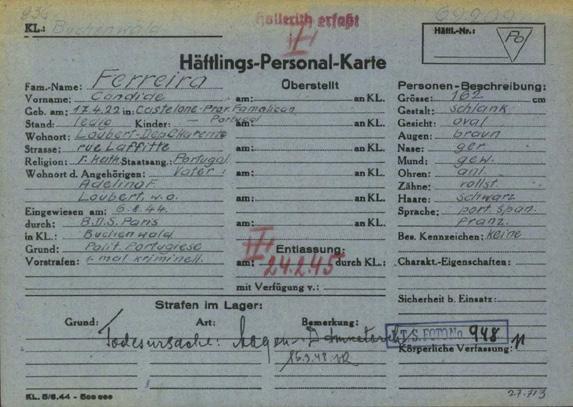 KL.: Buchenwald
Hollerith erfaßt
Häftl.-Nr.:
Po
Häftlings-Personal-Karte
Fam.-Name: Ferreira
Vorname: Candide
Geb. am: 17.4.22 in: Castelone-Prov. Famalican
Stand: ledig Kinder: — Portugal
Wohnort: Loubert-Dep Charente
Strasse: rue Laffitte
Religion: r. kath. Staatsang.: Portugal
Wohnort d. Angehörigen: Vater:
Adelino F.
Loubert, w.o.
Eingewiesen am: 6.8.44.
durch: B.D.S. Paris
in KL.: Buchenwald
Grund: Polit. Portugiese
Vorstrafen: 1 mal kriminell.
Überstellt
am: an KL.
am: an KL.
am: an KL.
am: an KL.
am: an KL.
am: an KL.
Entlassung:
am: 24.2.45 durch KL.:
mit Verfügung v.:
Personen-Beschreibung:
Grösse: 162 cm
Gestalt: schlank
Gesicht: oval
Augen: braun
Nase: ger
Mund: gew.
Ohren: anl.
Zähne: vollst.
Haare: schwarz
Sprache: port. span.
franz.
Bes. Kennzeichen: keine
Charakt.-Eigenschaften:
Sicherheit b. Einsatz:
I.T.S. FOTO No 948
Körperliche Verfassung:
Strafen im Lager:
Grund: Art: Bemerkung:
Todesursache:
KL. 5/6.44